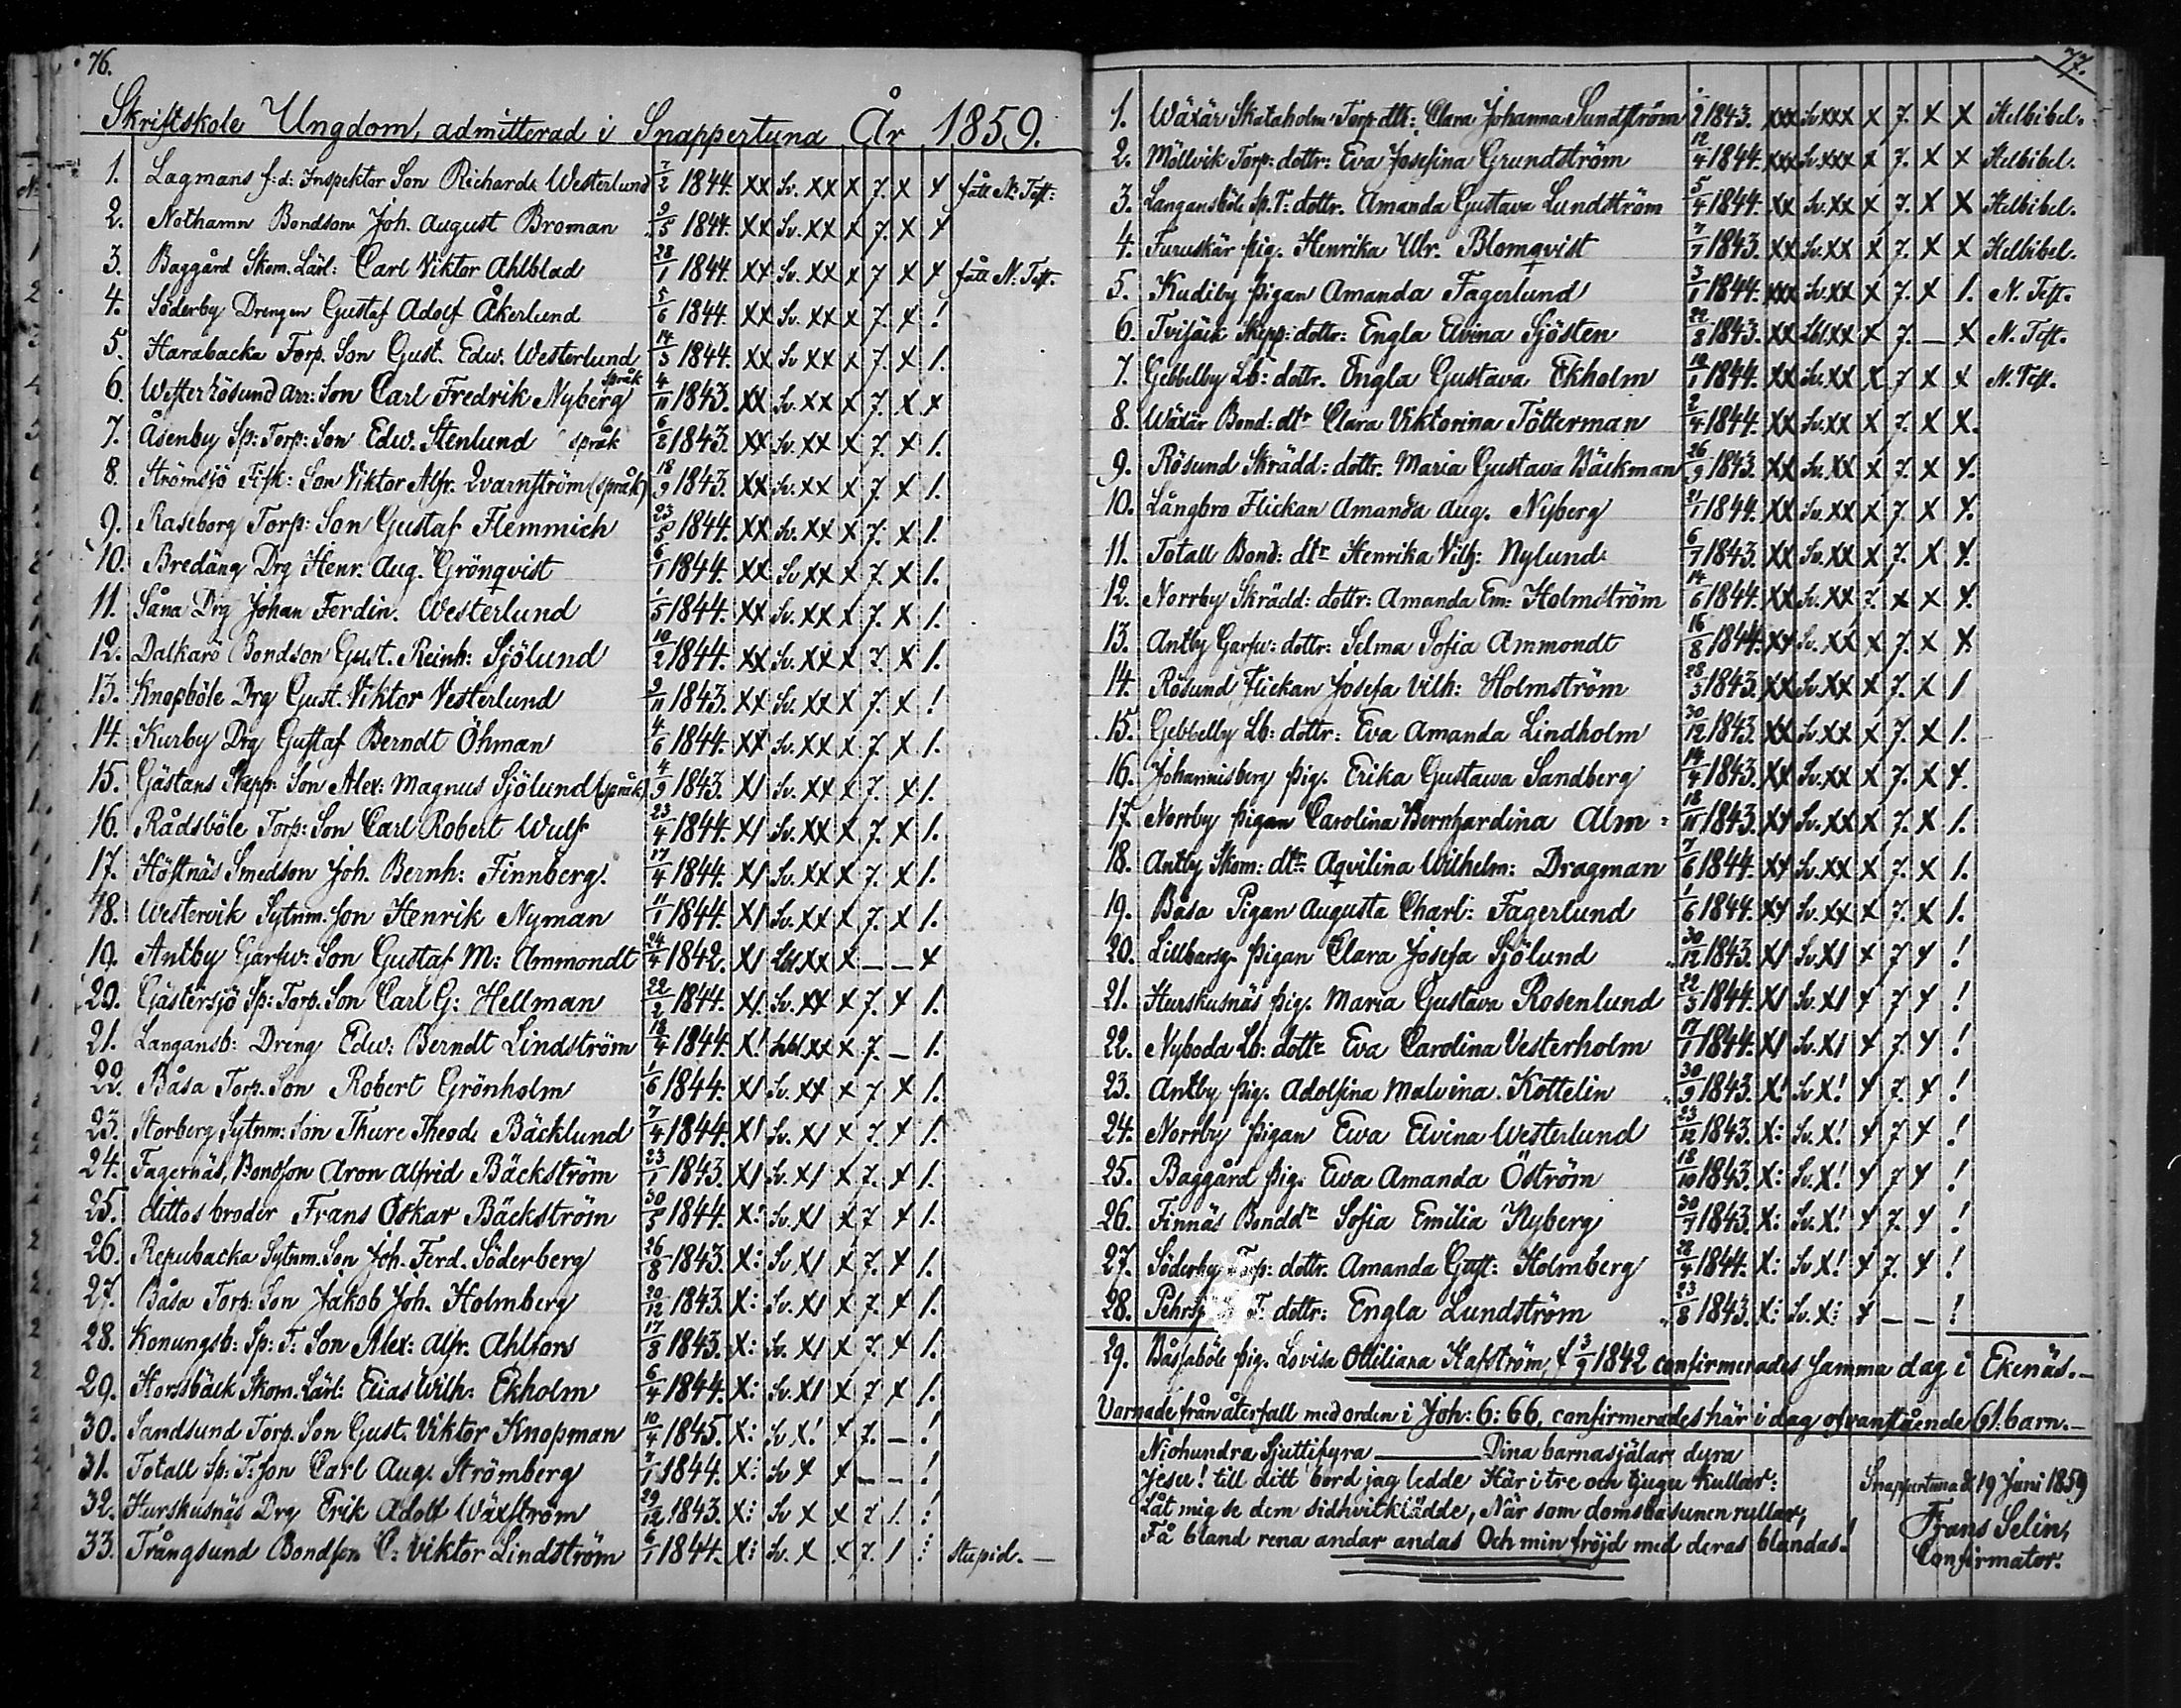 76.
Skriftskole Ungdom, admitterad i Snappertuna År 1859.
1. Lagmans f:d: Inspektor Son Richard Westerlund 7/2 1844. XX Sv. XX X 7. X X fått N: Test:
2. Nothamn Bondson Joh. August Broman 9/5 1844. XX Sv. XX X 7. X X
3. Baggård Skom. Lärl: Carl Viktor Ahlblad 28/1 1844. XX Sv. XX X 7 X X fått N. Test.
4. Söderby Drengen Gustaf Adolf Åkerlund 5/6 1844. XX Sv. XX X 7. X !
5. Harabacka Torp. Son Gust. Edw. Westerlund 14/3 1844. XX Sv XX X 7. X 1.
6. Wester Rösund Arr: Son Carl Fredrik Nyberg språk 4/11 1843. XX Sv. XX X 7. X X
7. Åsenby Sp: Torp: Son Edw. Stenlund (språk 6/2 1843. XX Sv. XX X 7. X 1.
8. Strömsjö Fisk: Son Viktor Alfr. Qvarnström (språk) 18/9 1843. XX Sv. XX X 7. X 1.
9. Raseborg Torp: Son Gustaf Flemmich 23/5 1844. XX Sv. XX X 7. X 1.
10. Bredäng Drg Henr. Aug. Grönqvist 6/1 1844. XX Sv XX X 7. X 1.
11. Såna Drg Johan Ferdin. Westerlund 1/5 1844. XX Sv. XX X 7. X 1.
12. Dalkarö Bondson Gust. Reinh: Sjölund 10/2 1844. XX Sv. XX X 7. X 1.
13. Knopböle Drg Gust. Viktor Vesterlund 9/11 1843. XX Sv. XX X 7. X !
14. Kurby Drg Gustaf Berndt Öhman 4/6 1844. XX Sv. XX X 7. X 1.
15. Gästans Skepp: Son Alex: Magnus Sjölund (språk) 4/9 1843. X1 Sv. XX X 7. X 1.
16. Rådsböle Torp: Son Carl Robert Wulf 23/4 1844. X1 Sv. XX X 7. X 1.
17. Höstnäs Smedson Joh. Bernh: Finnberg. 17/4 1844. X1 Sv. XX X 7. X 1.
18. Westervik Sytnm. Son Henrik Nyman 11/1 1844. X1 Sv. XX X 7. X 1.
19. Antby Garfw: Son Gustaf M: Ammondt 24/4 1842. X1 Lbl XX X — — X
20. Gästersjö Sp: Torp. Son Carl G: Hellman 22/2 1844. X1 Sv. XX X 7. X 1.
21. Langansb: Dreng Edw: Berndt Lindström 18/4 1844. X! Lbl XX X 7. — 1.
22. Båsa Torp. Son Robert Grönholm 1/6 1844. X1 Sv. XX X 7. X 1.
23. Storberg Sytnm: Son Thure Theod. Bäcklund 7/4 1844. X1 Sv. X1 X 7. X 1.
24. Fagernäs, Bondson Aron Alfrid Bäckström 23/1 1843. X1 Sv. X1 X 7. X 1.
25. dittos broder Frans Oskar Bäckström 30/5 1844. X: Sv. X1 X 7. X 1.
26. Repubacka Sytnm. Son Joh. Ferd. Söderberg 26/8 1843. X: Sv X1 X 7. X 1.
27. Båsa Torp: Son Jakob Joh. Holmberg 20/12 1843. X: Sv. X1 X 7. X 1.
28. Konungsb: Sp: T: Son Alex: Alfr. Ahlfors 17/8 1843. X: Sv. X1 X 7. X 1.
29. Horsbäck Skom. Lärl: Elias Wilh: Ekholm 6/4 1844. X: Sv. X1 X 7. X 1.
30. Sandsund Torp. Son Gust. Viktor Knopman 10/4 1845. X: Sv X! X 7. — !
31. Totall Sp: T: Son Carl Aug. Strömberg 7/1 1844. X: Sv X X — — !
32. Hurskusnäs Drg Erik Adolf Wäxström 29/12 1843. X: Sv X X 7. 1. :
33. Trångsund Bondson C: Viktor Lindström 6/1 1844. X: Sv. X X 7. 1 : Stupid. —
77.
1. Wäxär Skataholm Torp dtr: Clara Johanna Sundström 1/2 1843. XXX Sv XXX X 7. X X. Helbibel.
2. Möllvik Torp: dottr: Eva Josefina Grundström 12/4 1844. XXX Sv. XXX X 7. X X Helbibel.
3. Langansböle Sp. T: dottr. Amanda Gustava Lundström 5/4 1844. XX Sv. XX X 7. X X Helbibel.
4. Furuskär pig. Henrika Ulr. Blomqvist 7/7 1843. XX Sv. XX X 7. X X Helbibel.
5. Kudiby pigan Amanda Fagerlund 3/1 1844. XXX Sv. XX X 7. X 1. N. Test.
6. Trijäck Skepp: dottr: Engla Elvina Sjösten 22/8 1843. XX Lbl. XX X 7. — X N. Test.
7. Gebbelby Lb: dottr. Engla Gustava Ekholm 10/1 1844. XX Sv. XX X 7 X X N. Test.
8. Wäxär Bond: dtr Clara Viktorina Tötterman 2/4 1844. XX Sv. XX X 7. X X.
9. Rösund Skrädd: dottr. Maria Gustava Bäckman 26/9 1843. XX Sv. XX X 7. X X.
10. Långbro Flickan Amanda Aug. Nyberg 21/1 1844. XX Sv. XX X 7. X X.
11. Totall Bond: dtr Henrika Vilh: Nylund 6/7 1843. XX Sv. XX X 7. X X.
12. Norrby Skrädd: dottr: Amanda Em: Holmström 14/6 1844. XX Sv. XX 7. X X X.
13. Antby Garfw: dottr: Selma Sofia Ammondt 16/8 1844. XX Sv. XX X 7. X X
14. Rösund Flickan Josefa Vilh: Holmström 28/3 1843. XX Sv. XX X 7. X 1
15. Gebbelby Lb: dottr: Eva Amanda Lindholm 30/12 1843. XX Sv. XX X 7. X 1.
16. Johannisberg pig. Erika Gustawa Sandberg 14/4 1843. XX Sv. XX X 7. X X.
17. Norrby pigan Carolina Bernhardina Alm 18/11 1843. XX Sv. XX X 7. X 1.
18. Antby Skom: dtr: Aqvilina Wilhelm: Dragman 7/6 1844. XX Sv. XX X 7. X 1.
19. Båsa Pigan Augusta Charl: Fagerlund 1/6 1844. XX Sv. XX X 7. X 1.
20. Lillbarsg. pigan Clara Josefa Sjölund 30/12 1843. X1 Sv. X1 X 7 X !
21. Hurskusnäs pig. Maria Gustava Rosenlund 22/3 1844. X1 Sv. X1 X 7 X !
22. Nyboda Lb: dottr Eva Carolina Vesterholm 17/1 1844. X1 Sv. X1 X 7. X !
23. Antby pig. Adolfina Malvina Kottelin 30/9 1843. X! Sv X! X 7. X !
24. Norrby pigan Ewa Elvina Westerlund 23/12 1843. X: Sv. X! X 7 X !
25. Baggård pig. Ewa Amanda Öström 18/10 1843. X: Sv. X! X 7 X !
26. Finnäs Bonddr Sofia Emilia Nyberg 30/7 1843. X: Sv. X! X 7. X !
27. Söderby Torp: dottr. Amanda Gust: Holmberg 22/4 1844. X: Sv X! X 7. X !
28. T. dottr: Engla Lundström 23/8 1843. X: Sv. X: X — — !
29. Båssaböle pig. Lovisa Ottiliana Hafström, f 3/9 1842 confirmerades samma dag i Ekenäs. —
Varnade från återfall med orden i Joh: 6: 66, confirmerades här i dag ofvanstående 61. barn. —
Niohundra Sjuttifyra ——— Dina barnasjälar dyra
Jesu! till ditt bord jag ledde Här i tre och tjugu kullar:
Låt mig se dem sidhvitklädde, När som domsbasunen rullar,
Få bland rena andar andas Och min fröjd med deras blandas!
Snappertuna d. 19 Juni 1859
Frans Selin,
Confirmator.